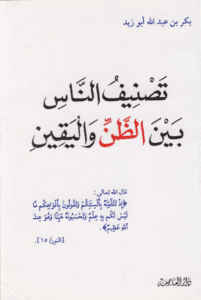 بكر بن عبد الله أبو زيد
تَصْنِيفُ النَّاسِ
بَيْنَ الظَّنِّ وَالْيَقِينِ
قال الله تعالى:
﴿إِذْ تَلَقَّوْنَهُ بِأَلْسِنَتِكُمْ وَتَقُولُونَ بِأَفْوَاهِكُمْ مَا
لَيْسَ لَكُمْ بِهِ عِلْمٌ وَتَحْسَبُونَهُ هَيِّنًا وَهُوَ عِنْدَ
اللَّهِ عَظِيمٌ﴾.
[النور/١٥].
دار العاصمة